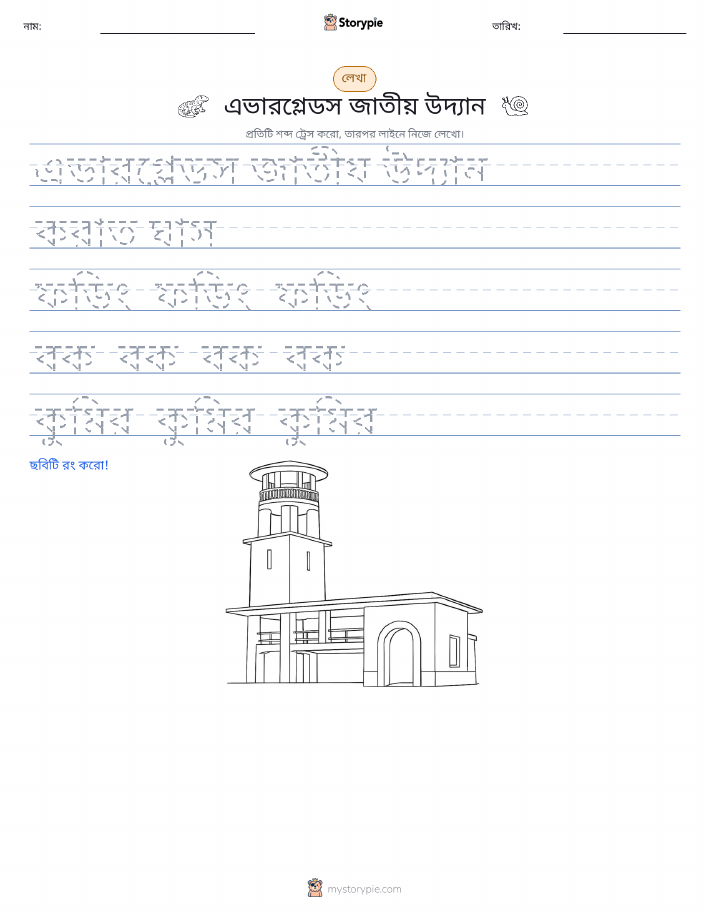 নাম:
Storypie
তারিখ:
লেখা
এভারগ্লেডস জাতীয় উদ্যান
প্রতিটি শব্দ ট্রেস করো, তারপর লাইনে নিজে লেখো।
এভারগ্লেডস জাতীয় উদ্যান
করাত ঘাস
ফড়িং ফড়িং ফড়িং
বক বক বক বক
কুমির কুমির কুমির
ছবিটি রং করো!
mystorypie.com